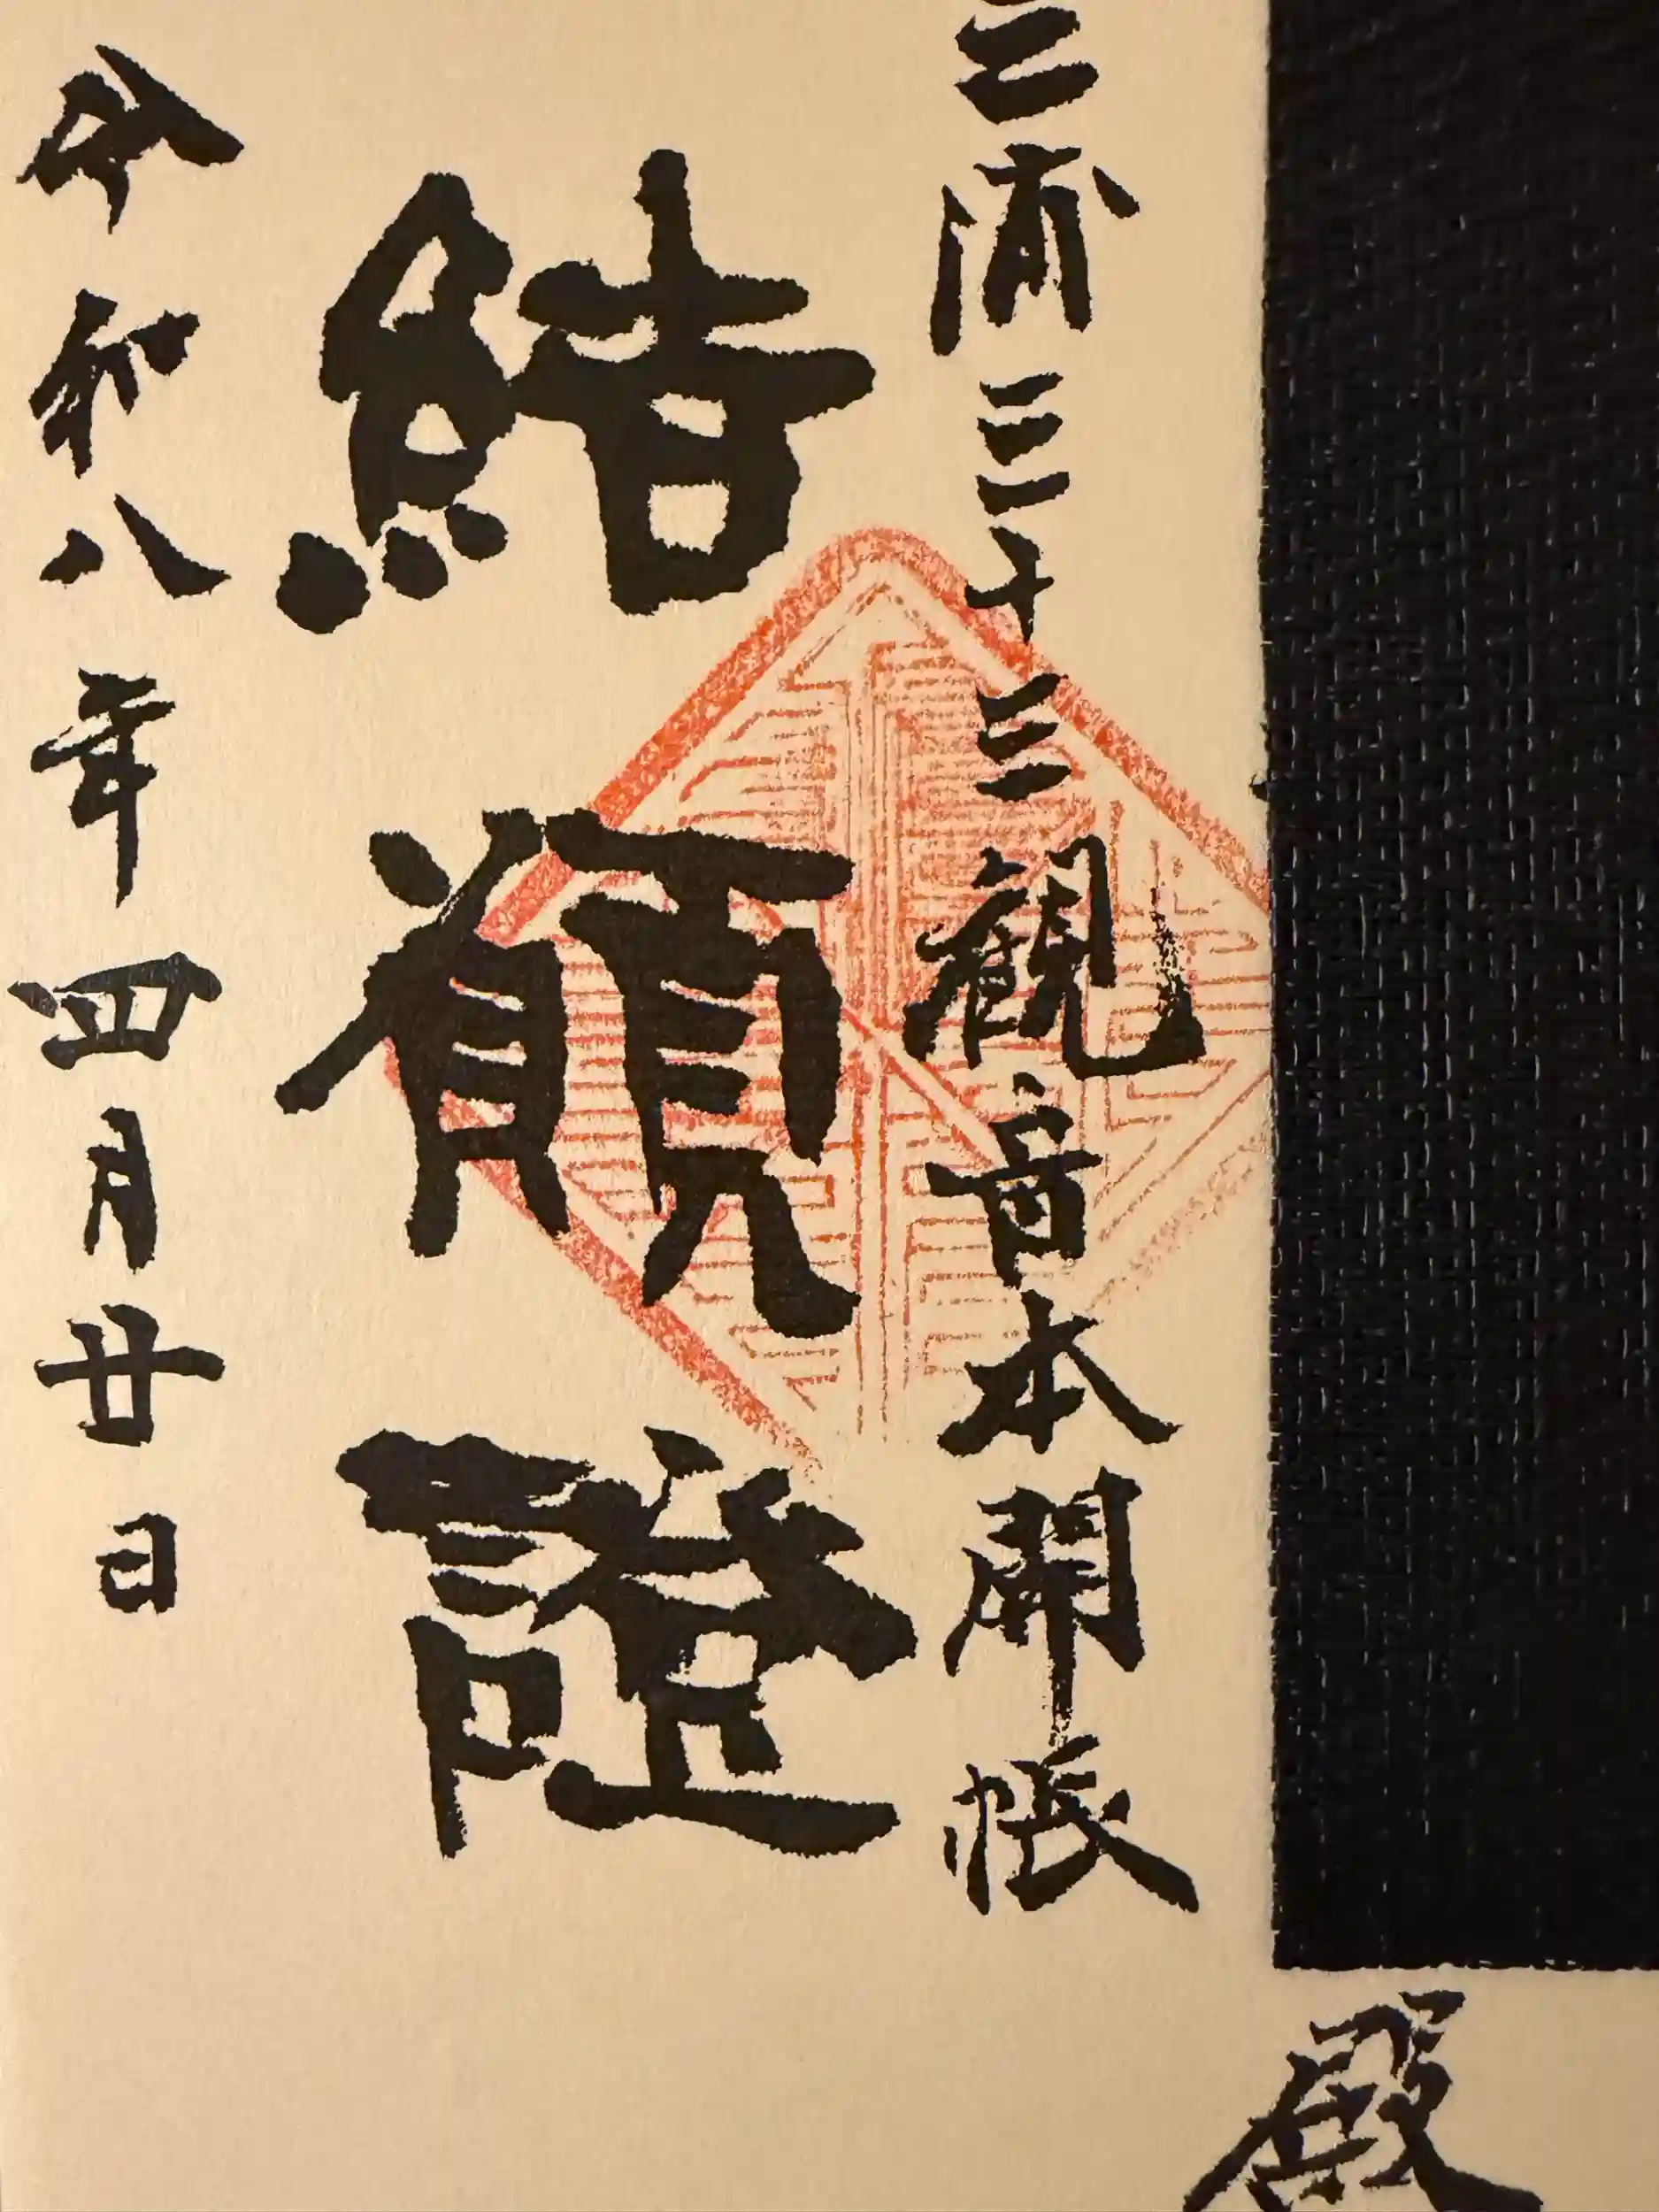 殿
三浦三十三観音本開帳
結願證
令和八年四月廿日